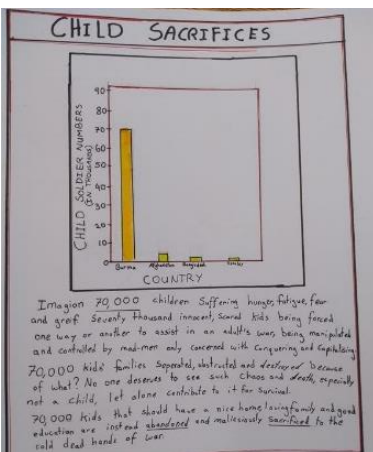 CHILD SACRIFICES
CHILD SOLDIER NUMBERS
(IN THOUSANDS)
90
80
70
60
50
40
30
20
10
0
Burma Afghanistan Bangladesh
COUNTRY
Imagion 70,000 children Suffering hunger, fatigue, fear
and greif. Seventy thousand innocent, scared kids being forced
one way or another to assist in an adult's war, being manipulated
and controlled by mad-men only concerned with Conquering and Capitalizing.
70,000 kids' families Seperated, obstructed and destroyed because
of what? No one deserves to see such chaos and death, especially
not a child, let alone contribute to it for Survival.
70,000 kids that should have a nice home, loving family and good
education are instead abandoned and maliciously Sacrificed to the
cold dead hands of war.